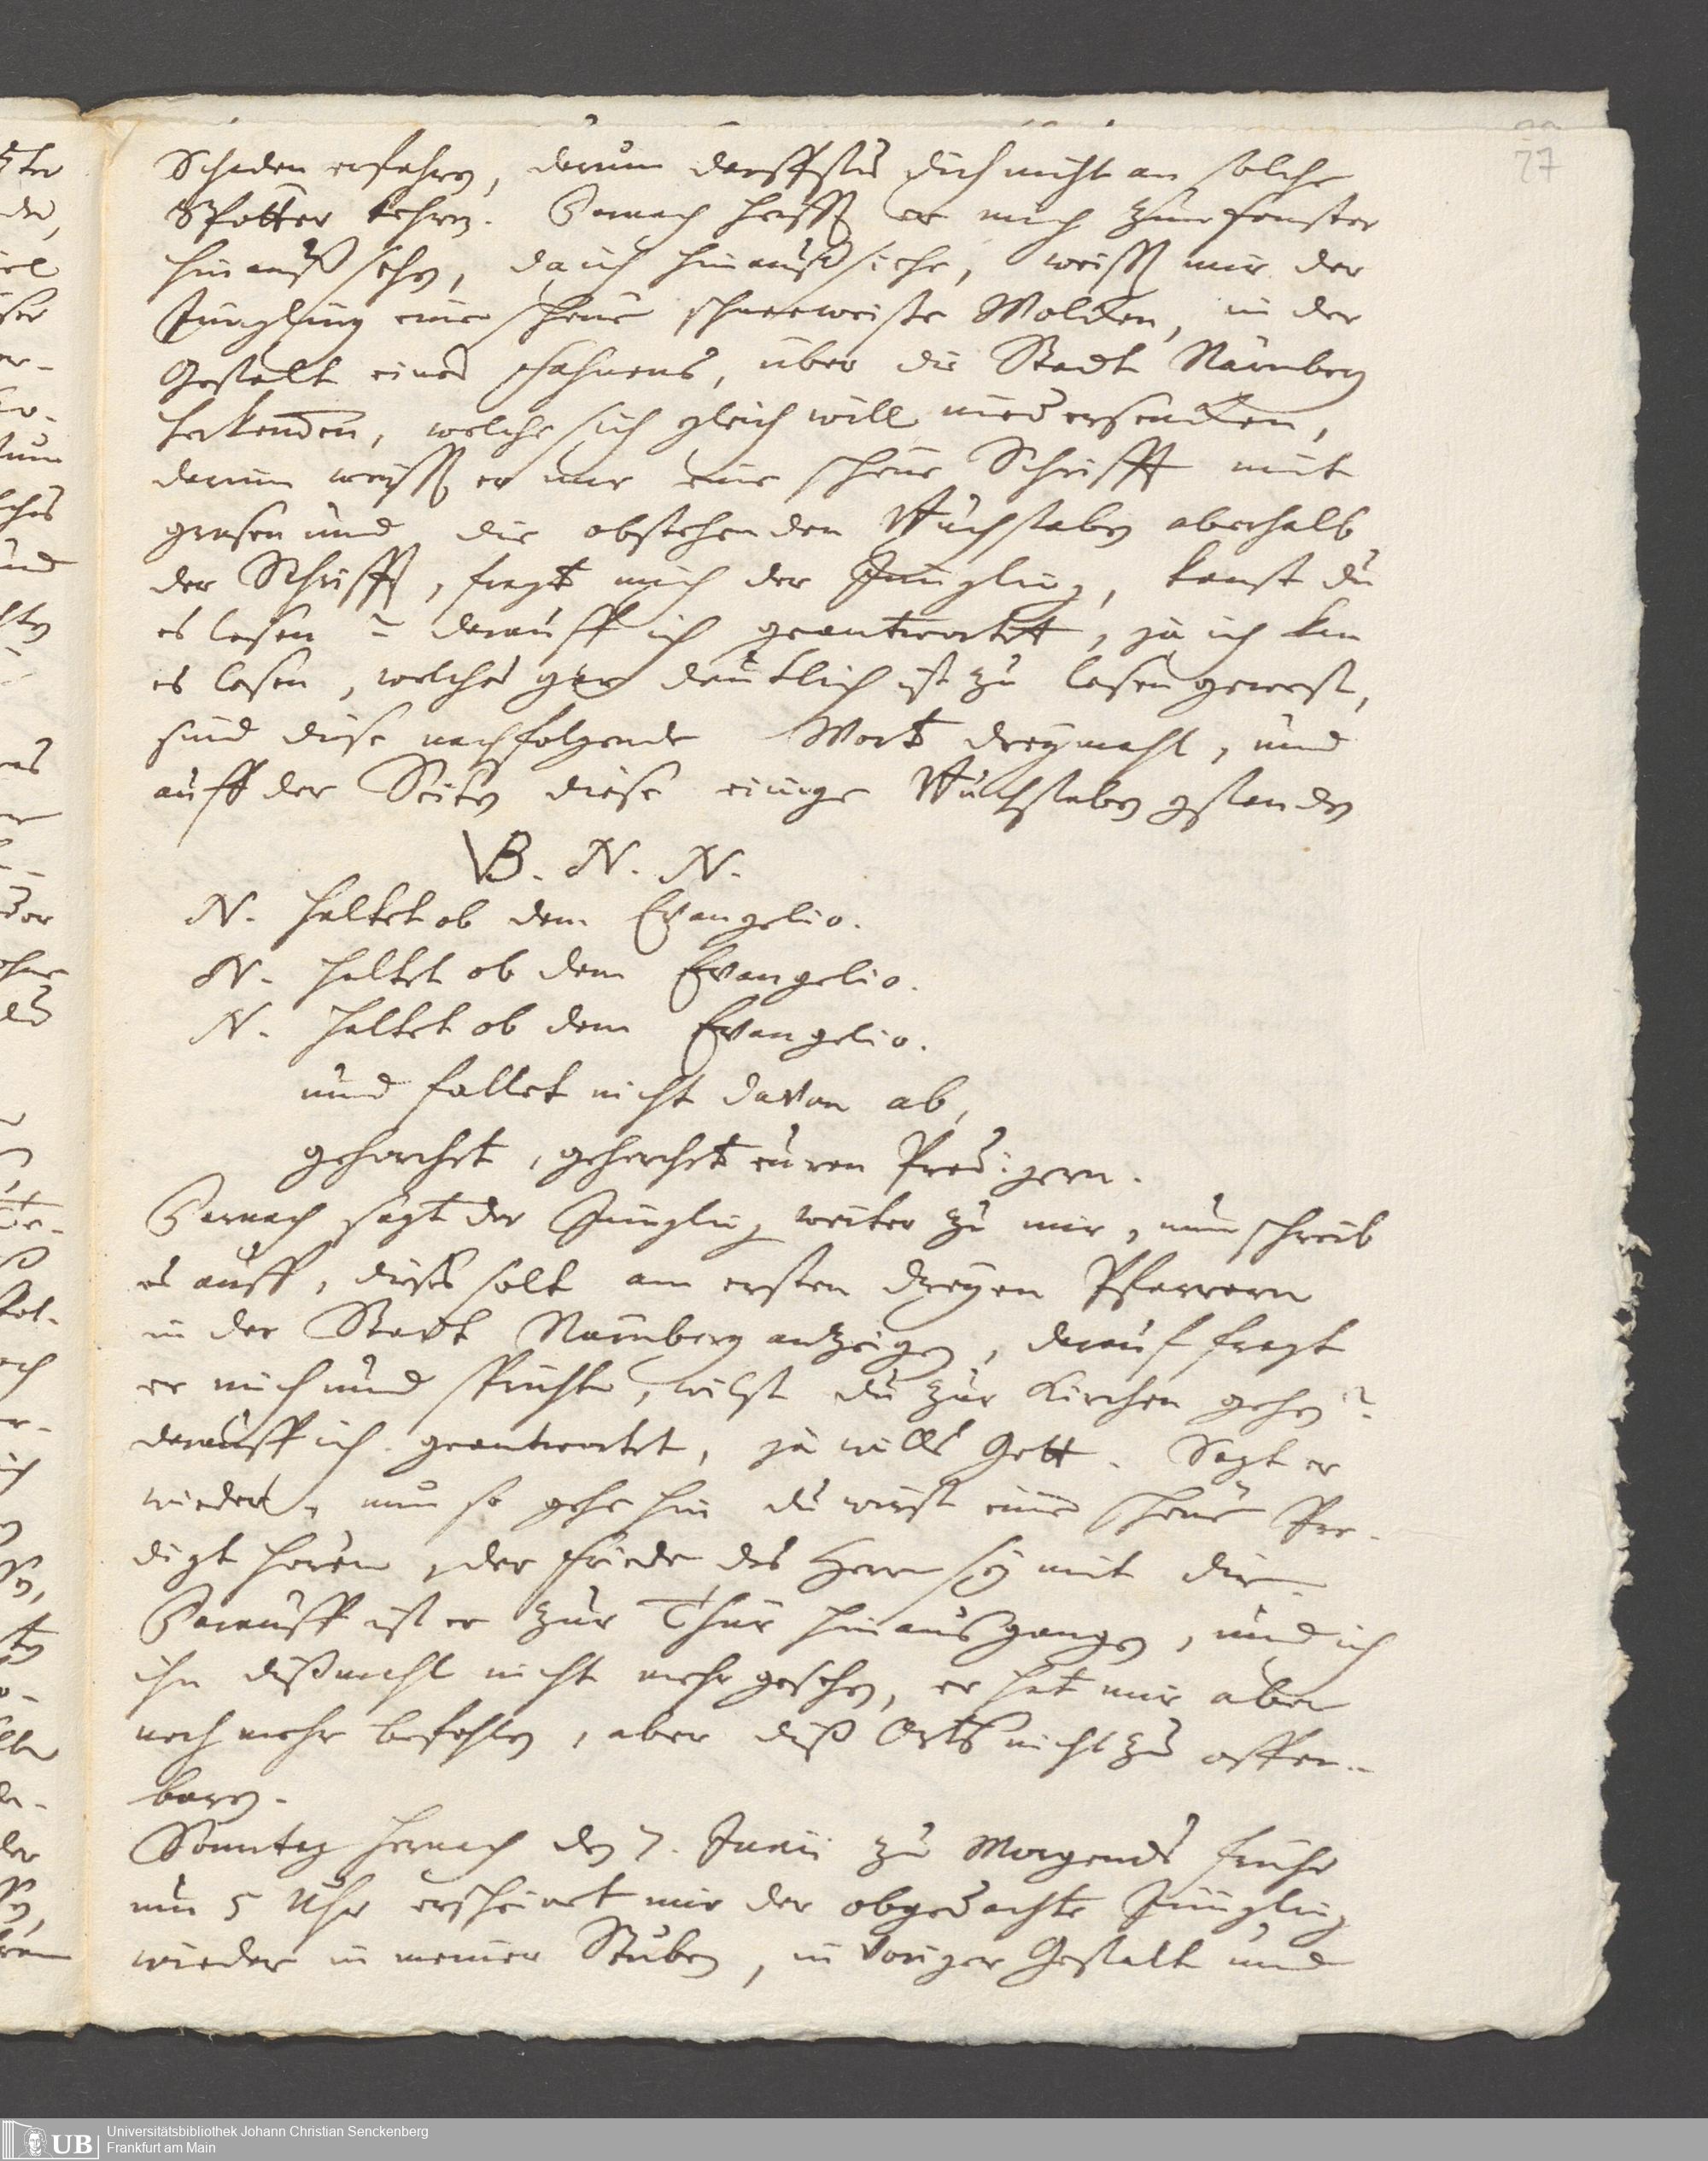 77
Schaden erfahren, darum darffstu dich nicht an solche
Spötter kehren. Darnach heisst er mich zum fenster
hinauß sehen, da ich hinauß siehe, weisst mir der
Jüngling eine schöne schneeweiße Wolcken, in der
Gestalt eines Fahnens, über die Stadt Nürnberg
welche sich gleich will nidersencken,
darinn weisst er mir eine schöne Schrifft mit
grosen und die obstehenden Buchstaben oberhalb
der Schrifft, fragt mich der Jüngling, kanst du
es lesen? darauff ich geantwortt, ja ich kan
es lesen, welches gar deutlich ist zu lesen gewest,
sind diese nachfolgende Wort dreymahl, und
auff der Seiten diese einige Buchstaben gstanden
B. N. N.
N. haltet ob dem Evangelio.
N. haltet ob dem Evangelio.
N. haltet ob dem Evangelio.
und fallet nicht davon ab,
gehorchet, gehorchet euren Predigern.
Darnach sagt der Jüngling weiter zu mir, nun schreib
es auff, dieses solt am ersten dreyen Pfarrern
in der Stadt Nürnberg anzeigen, darauf fragt
er mich und spricht, wilst du zur Kirchen gehen?
darauff ich geantwortet, ja wills Gott. Sagt er
wieder, nun so gehe hin du wirst eine schöne Pre-
digt hören, der friede des Herrn sey mit dir.
Darauff ist er zur Thür hinausgangen, und ich
ihn dißmahl nicht mehr gesehen, er hat mir aber
noch mehr befohlen, aber diß Orts nicht zu offen-
baren.
Sonntag hernach den 7. Junii zu Morgends frühe
um 5 Uhr erscheinet mir der obgedachte Jüngling
wieder in meiner Stuben, in voriger Gestalt und
UB Universitätsbibliothek Johann Christian Senckenberg
Frankfurt am Main